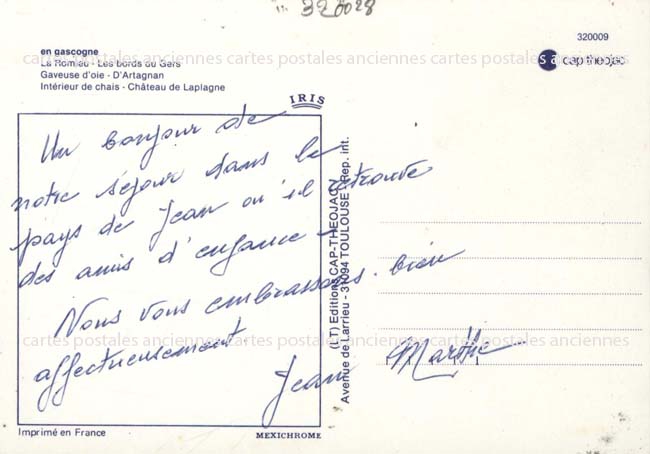 320028
320009
en gascogne
La Romieu - Les bords du Gers
Gaveuse d'oie - D'Artagnan
Intérieur de chais - Château de Laplagne
cap-theojac
cartes postales anciennes cartes postales anciennes cartes postales anciennes
IRIS
Un bonjour de
notre séjour dans le
pays de Jean où il retrouve
des amis d'enfance -
Nous vous embrassons bien
affectueusement
Jean
Marthe
(LT) Editions CAP-THEOJAC
Avenue de Larrieu - 31094 TOULOUSE Rep. int.
cartes postales anciennes cartes postales anciennes cartes postales anciennes
Imprimé en France
MEXICHROME